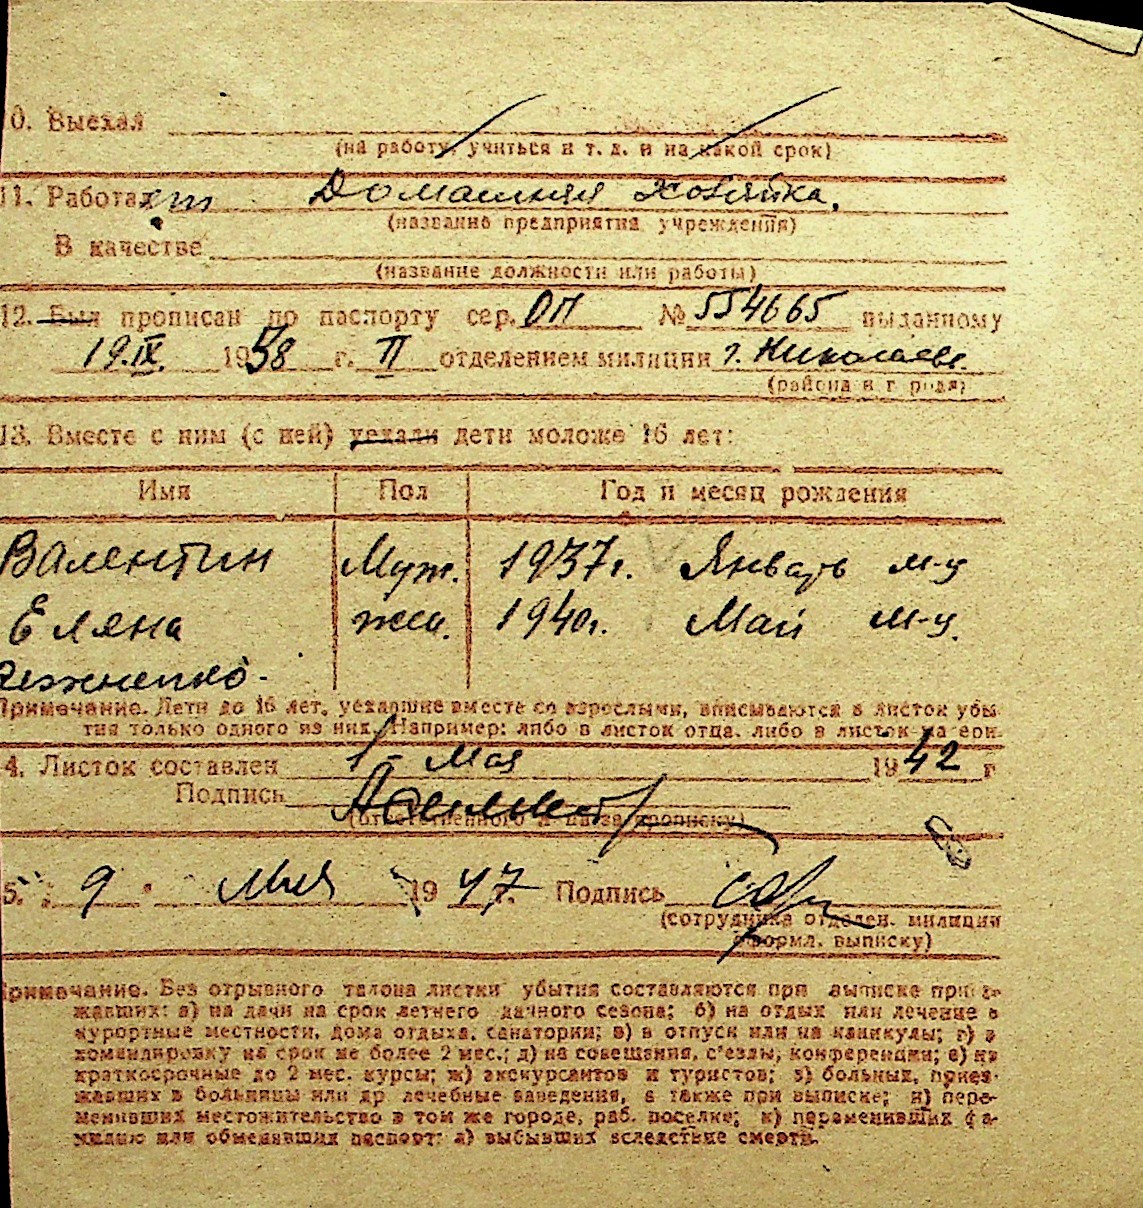 0. Выехал
(на работу, учиться и т. д. и на какой срок)
11. Работает Домашняя хозяйка.
(название предприятия учреждения)
В качестве
(название должности или работы)
12. Был прописан по паспорту сер. ОП № 554665 выданному
19.IX. 1938 г. II отделением милиции г. Николаев.
(района и г рода)
13. Вместе с ним (с ней) уехали дети моложе 16 лет:
Имя Пол Год и месяц рождения
Валентин Муж. 1937г. Январь м-ц
Еляна жен. 1940г. Май м-ц.
Примечание. Дети до 16 лет, уехавшие вместе со взрослыми, вписываются в листок убы-
тия только одного из них. Например: либо в листок отца, либо в листок
4. Листок составлен 1 - Мая 1942 г
Подпись
(ответственного прописку)
5. 9 мая 1947 г. Подпись
(сотрудника отделен. милиции
оформл. выписку)
Примечание. Без отрывного талона листки убытия составляются при выписке приез-
жавших: а) на дачи на срок летнего дачного сезона; б) на отдых или лечение в
курортные местности, дома отдыха, санатории; в) в отпуск или на каникулы; г) в
командировку на срок не более 2 мес.; д) на совещания, с'езды, конференции; е) на
краткосрочные до 2 мес. курсы; ж) экскурсантов и туристов; з) больных, приез-
жавших в больницы или др лечебные заведения, а также при выписке; и) пере-
менивших местожительство в том же городе, раб. поселке; к) переменивших фа-
милию или обменявших паспорт; л) выбывших вследствие смерти.